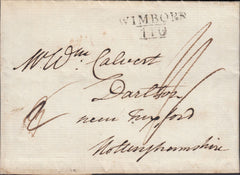 WIMBORN
110
Mr Wm Calvert
Darlton
near Tuxford
Nottinghamshire